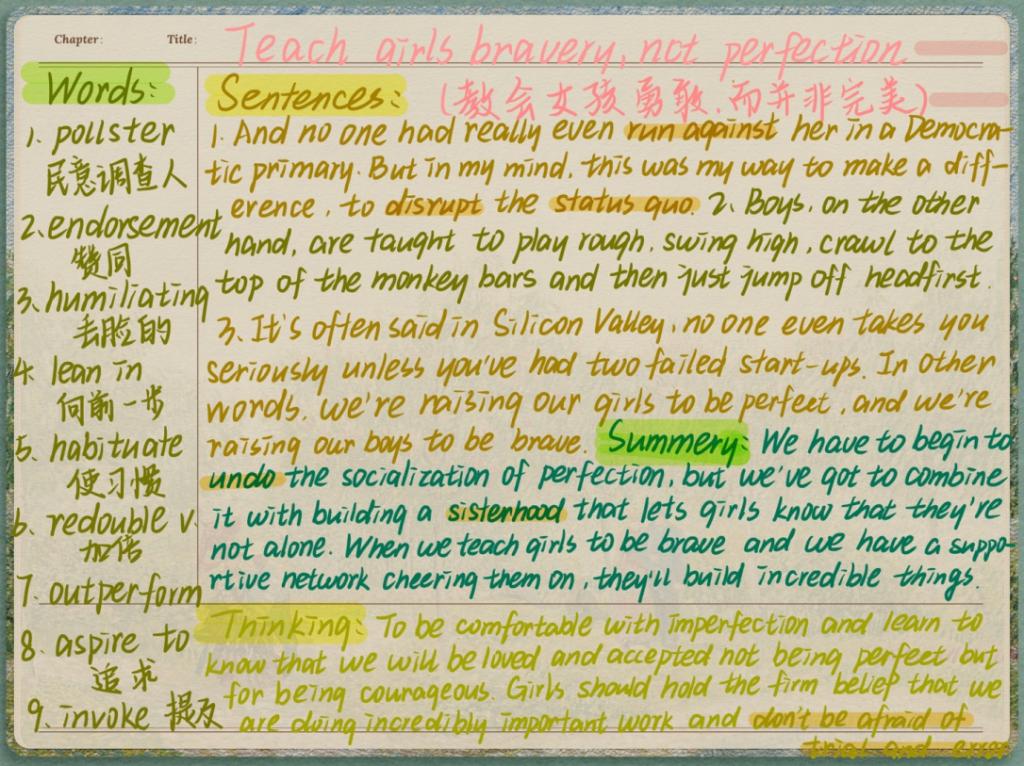 Chapter: Title: Teach girls bravery, not perfection
(教会女孩勇敢,而并非完美)
Words:
1. pollster
民意调查人
2. endorsement
赞同
3. humiliating
丢脸的
4. lean in
向前一步
5. habituate
使习惯
6. redouble v.
加倍
7. outperform
8. aspire to
追求
9. invoke 提及
Sentences:
1. And no one had really even run against her in a Democra-
tic primary. But in my mind, this was my way to make a diff-
erence, to disrupt the status quo. 2. Boys, on the other
hand, are taught to play rough, swing high, crawl to the
top of the monkey bars and then just jump off headfirst.
3. It's often said in Silicon Valley, no one even takes you
seriously unless you've had two failed start-ups. In other
words, we're raising our girls to be perfect, and we're
raising our boys to be brave. Summery: We have to begin to
undo the socialization of perfection, but we've got to combine
it with building a sisterhood that lets girls know that they're
not alone. When we teach girls to be brave and we have a suppo-
rtive network cheering them on, they'll build incredible things.
Thinking: To be comfortable with imperfection and learn to
know that we will be loved and accepted not being perfect but
for being courageous. Girls should hold the firm belief that we
are doing incredibly important work and don't be afraid of
trial and error